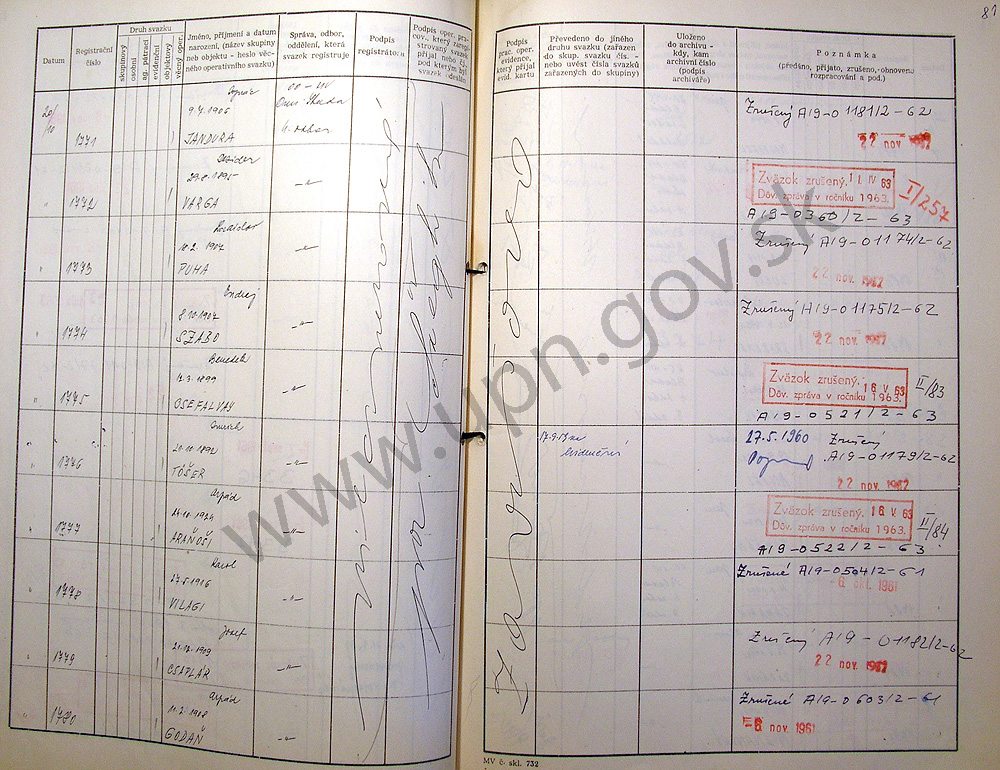 81
Datum
Registrační číslo
Druh svazku
skupinový
osobní
ag. pátrací
evidenční
objektový
věcný oper.
Jméno, příjmení a datum
narození, (název skupiny
neb objektu - heslo věc-
ného operativního svazku)
Správa, odbor,
oddělení, která
svazek registruje
Podpis
registrátora
Podpis oper. pra-
cov. který zaregi-
strovaný svazek
přijal nebo ů.
pod kterým byl
svazek odeslán
Podpis
prac. oper.
evidence,
který přijal
evid. kartu
Převedeno do jiného
druhu svazku (zařazen
do skup. svazku čís. -
nebo uvést čísla svazků
zařazených do skupiny)
Uloženo
do archivu -
kdy, kam
archivní číslo
(podpis
archiváře)
Poznámka
(předáno, přijato, zrušeno,-obnoveno
rozpracování a pod.)
20/10
1771
9.4.1906
JANDURA
Zrušený A19-01181/2-62
22 nov 1962
1772
29.8.1895
VARGA
-"-
Zväzok zrušený. 11. IV 63
Dôv. zpráva v ročníku 1963.
I/257
A19-0360/2-63
1773
18.2.1907
PUHA
-"-
Zrušený A19-01174/2-62
22 nov. 1962
1774
Ondrej
8.10.1907
SZABO
-"-
Zrušený A19-01175/2-62
22 nov. 1962
1775
Benedek
12.3.1899
OSEFALVAY
-"-
Zväzok zrušený. 16 V 63
Dôv. zpráva v ročníku 1963.
II/83
A19-0521/2-63
1776
20.10.1892
TÖŠER
-"-
evidenční
27.5.1960 Zrušený
A19-01179/2-62
22 nov. 1962
1777
Arpád
24.10.1924
ARAŇOŠI
-"-
Zväzok zrušený. 16 V 63
Dôv. zpráva v ročníku 1963.
II/84
A19-0522/2-63
1778
Karol
27.5.1906
VILAGI
-"-
Zrušené A19-0504/2-61
-6. okt. 1961
1779
Jozef
21.12.1909
CSATLÁR
-"-
Zrušený A19-01182/2-62
22 nov. 1962
1780
Arpád
11.2.1908
GODAŇ
-"-
Zrušené A19-0603/2-61
-6. nov. 1961
MV č. skl. 732
www.upn.gov.sk